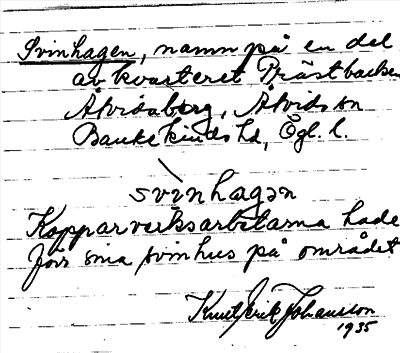 Svinhagen, namn på en del
av kvarteret Prästbacken
Åtvidaberg, Åtvids sn
Bankekinds hd, Ögl. l.
svinhagən
Kopparverksarbetarna hade
förr sina svinhus på området
Knut Erik Johansson
1935